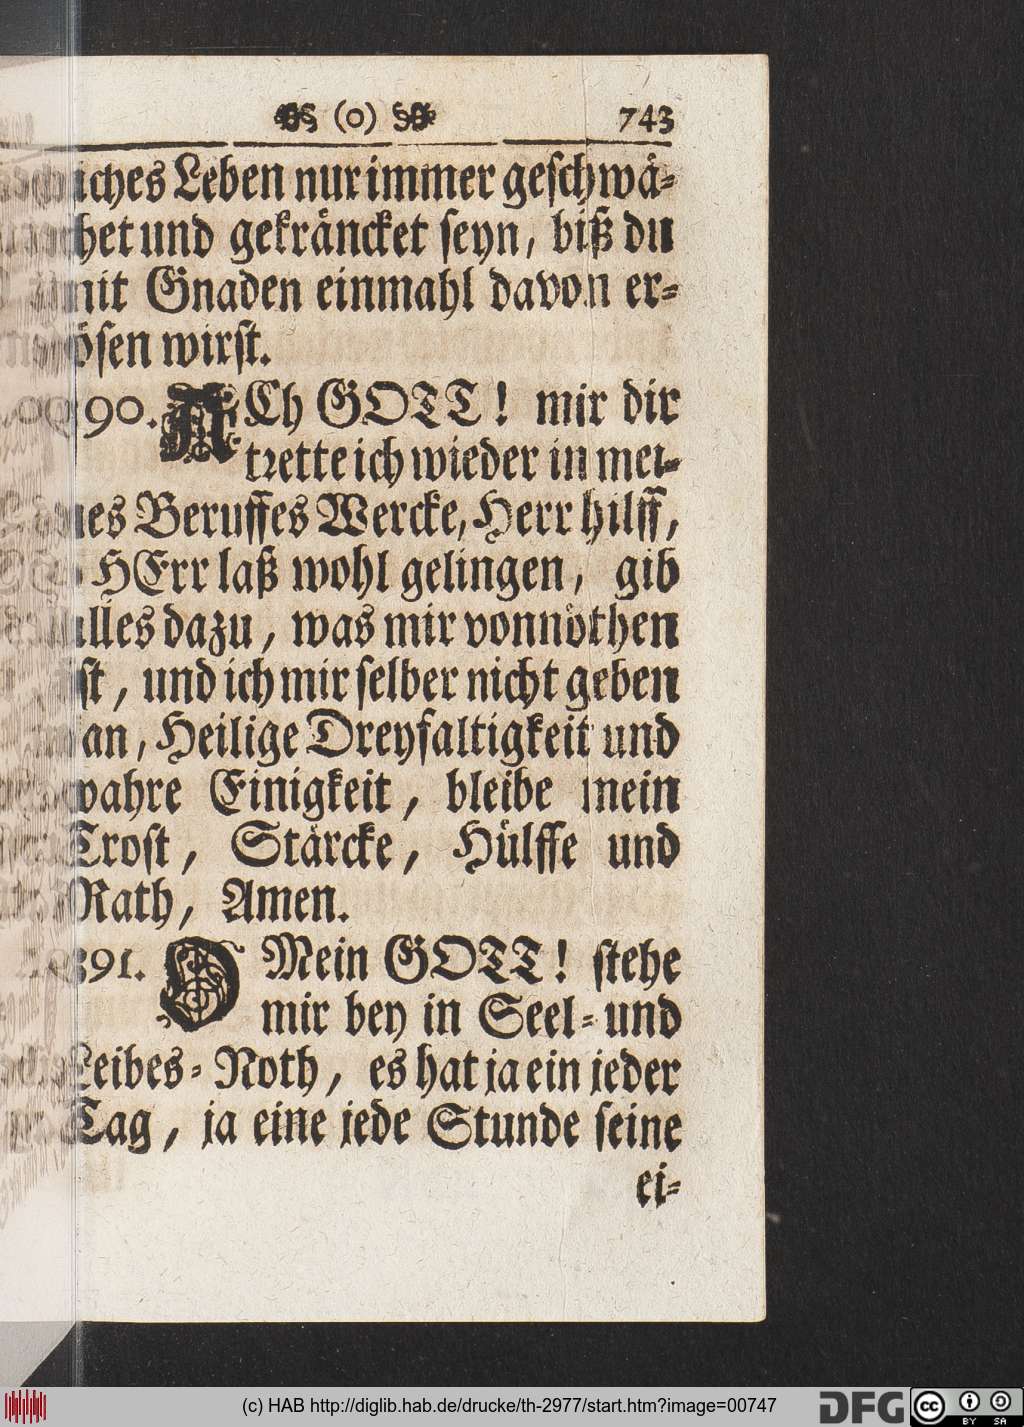 (o) 743
iches Leben nur immer geschwä-
chet und gekräncket seyn, biß du
mit Gnaden einmahl davon er-
lösen wirst.
90. ACh GOTT! mir dir
trette ich wieder in mei-
nes Beruffes Wercke, Herr hilff,
HErr laß wohl gelingen, gib
alles dazu, was mir vonnöthen
ist, und ich mir selber nicht geben
kan, Heilige Dreyfaltigkeit und
wahre Einigkeit, bleibe mein
Trost, Stärcke, Hülffe und
Rath, Amen.
391. O Mein GOTT! stehe
mir bey in Seel- und
Leibes-Noth, es hat ja ein jeder
Tag, ja eine jede Stunde seine
ei-
(c) HAB http://diglib.hab.de/drucke/th-2977/start.htm?image=00747
DFG
cc BY SA